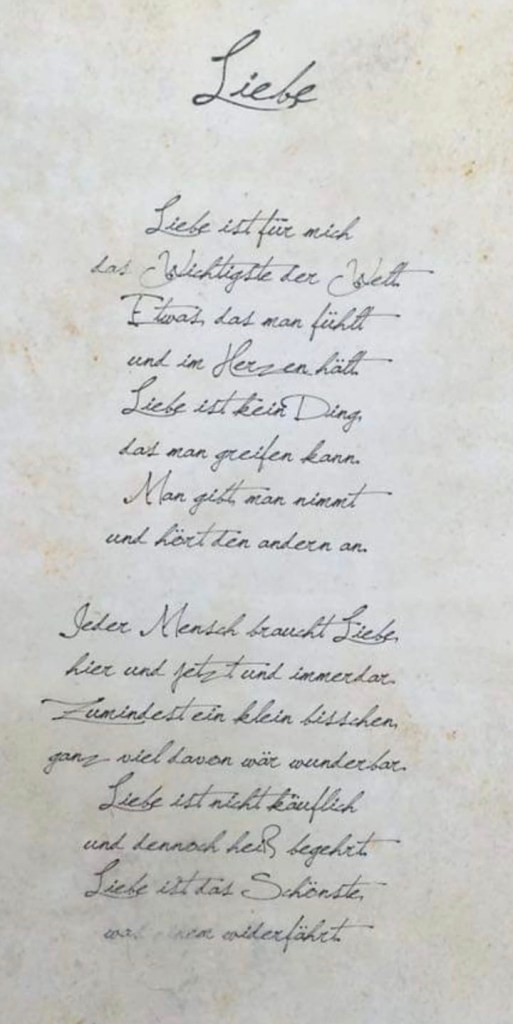 Liebe
Liebe ist für mich
das Wichtigste der Welt.
Etwas, das man fühlt
und im Herzen hält.
Liebe ist kein Ding,
das man greifen kann.
Man gibt, man nimmt
und hört den andern an.
Jeder Mensch braucht Liebe,
hier und jetzt und immerdar.
Zumindest ein klein bisschen,
ganz viel davon wär wunderbar.
Liebe ist nicht käuflich
und dennoch heiß begehrt.
Liebe ist das Schönste,
was einem widerfährt.